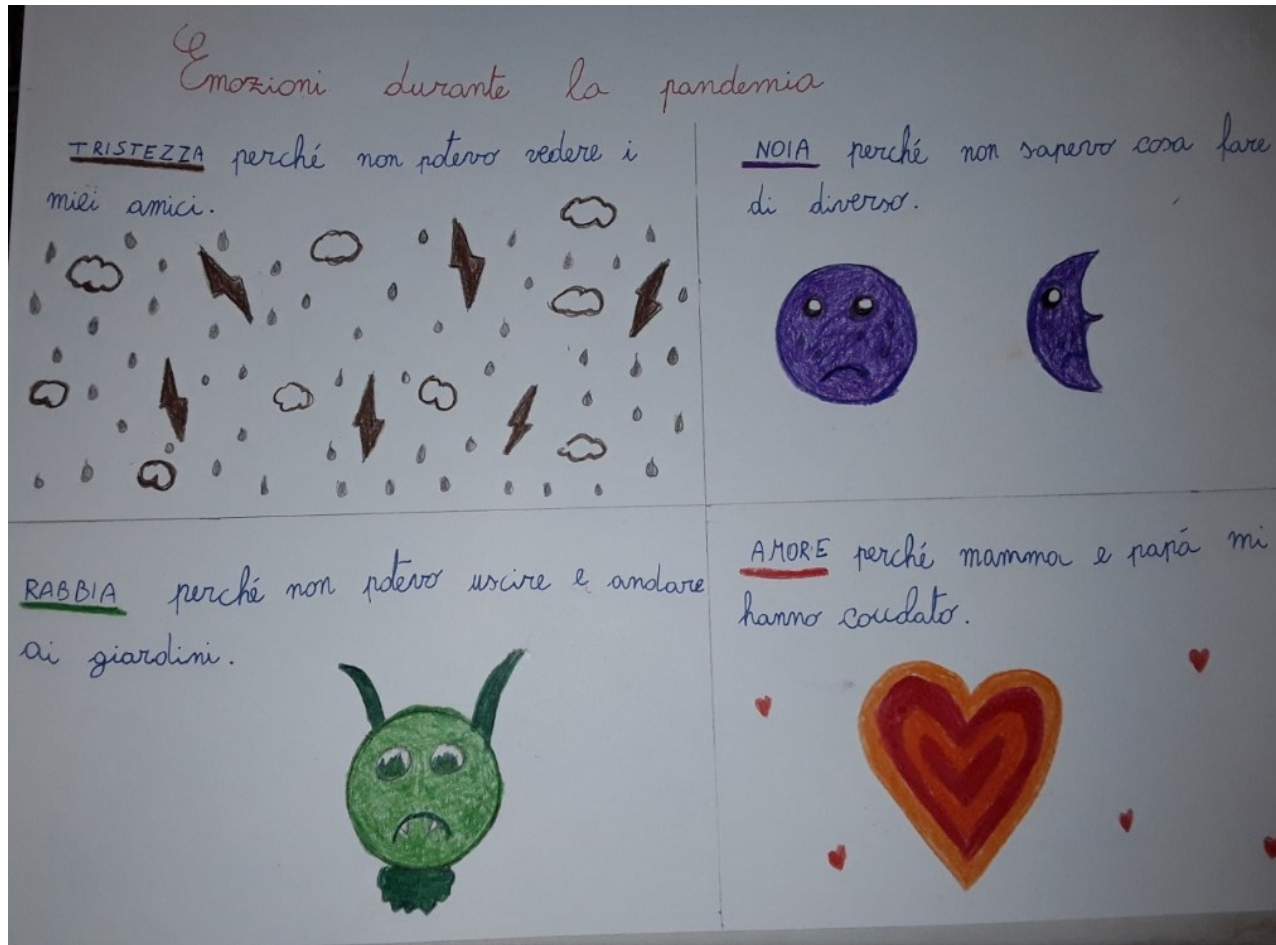 Emozioni durante la pandemia
TRISTEZZA perché non potevo vedere i
miei amici.
NOIA perché non sapevo cosa fare
di diverso.
RABBIA perché non potevo uscire e andare
ai giardini.
AMORE perché mamma e papá mi
hanno coudato.